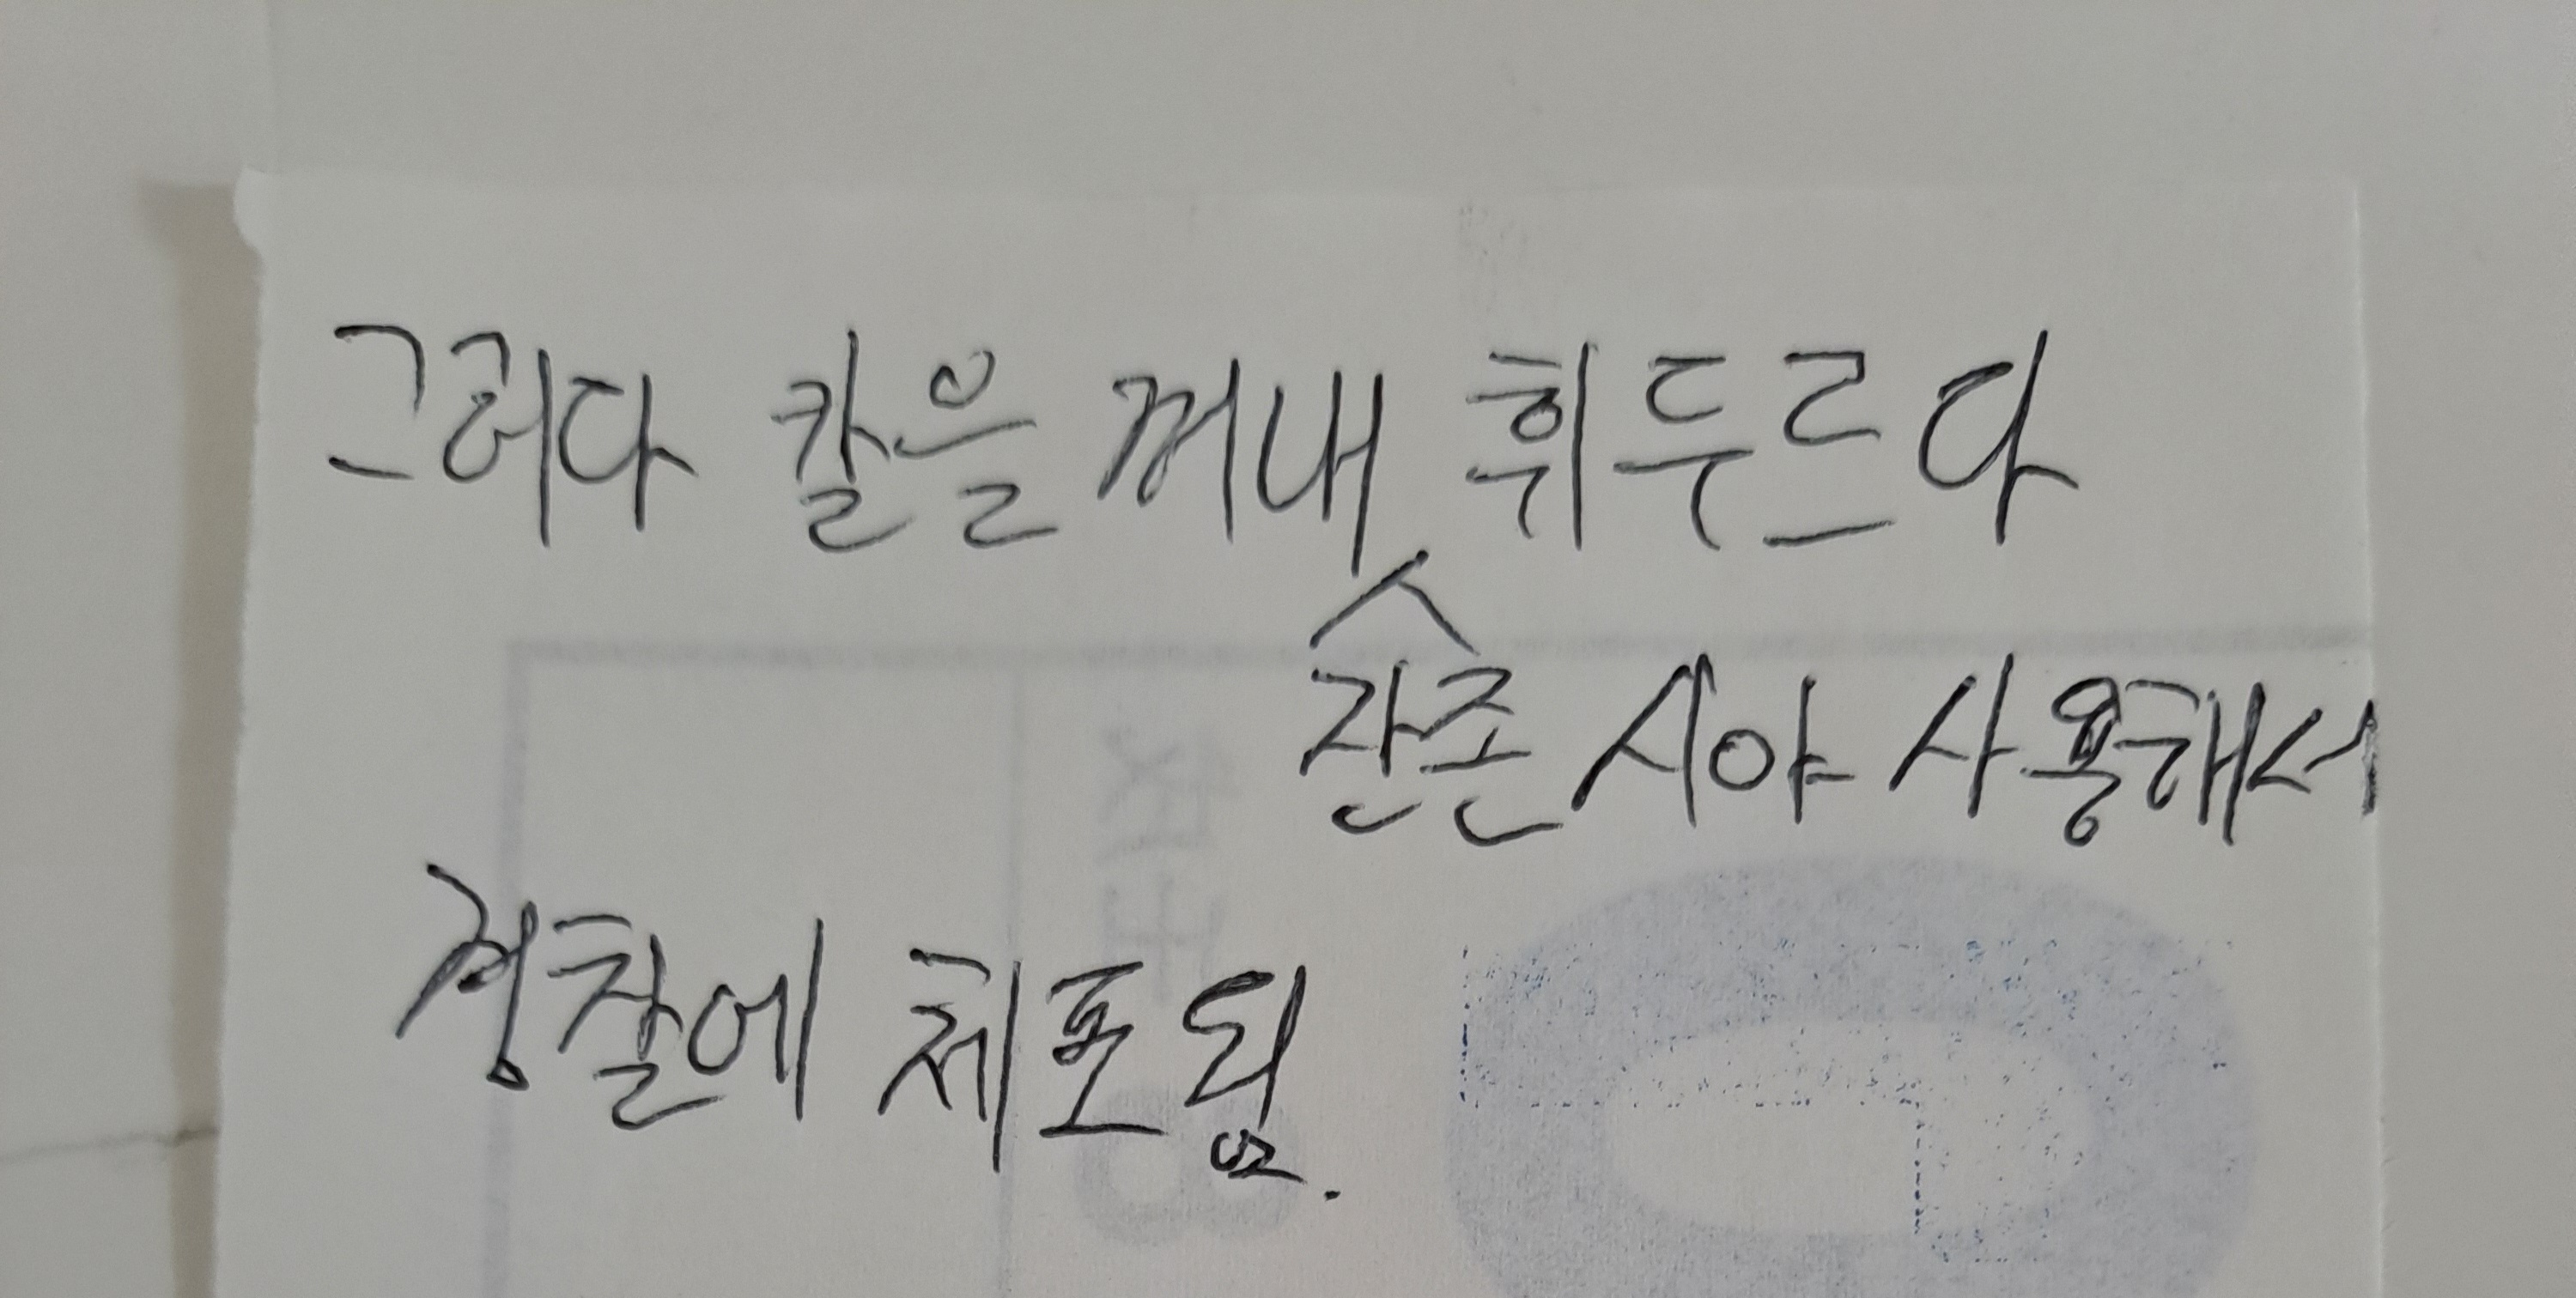 그러다 칼을 꺼내 휘두르다
잔존 시야 사용해서
경찰에 체포됨.